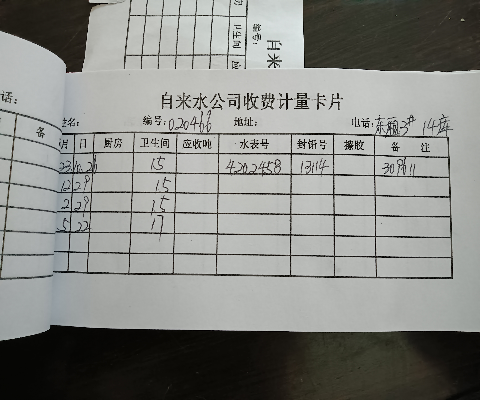 卫生间
编号:
自来
话:
自来水公司收费计量卡片
姓名: 编号: 020466 地址: 电话: 东丽3# 14库
备
月 日 厨房 卫生间 应收吨 水表号 封铅号 擦胶 备 注
23.10.26 15 4202458 13114 309611
12 29 15
2 29 15
5 22 17